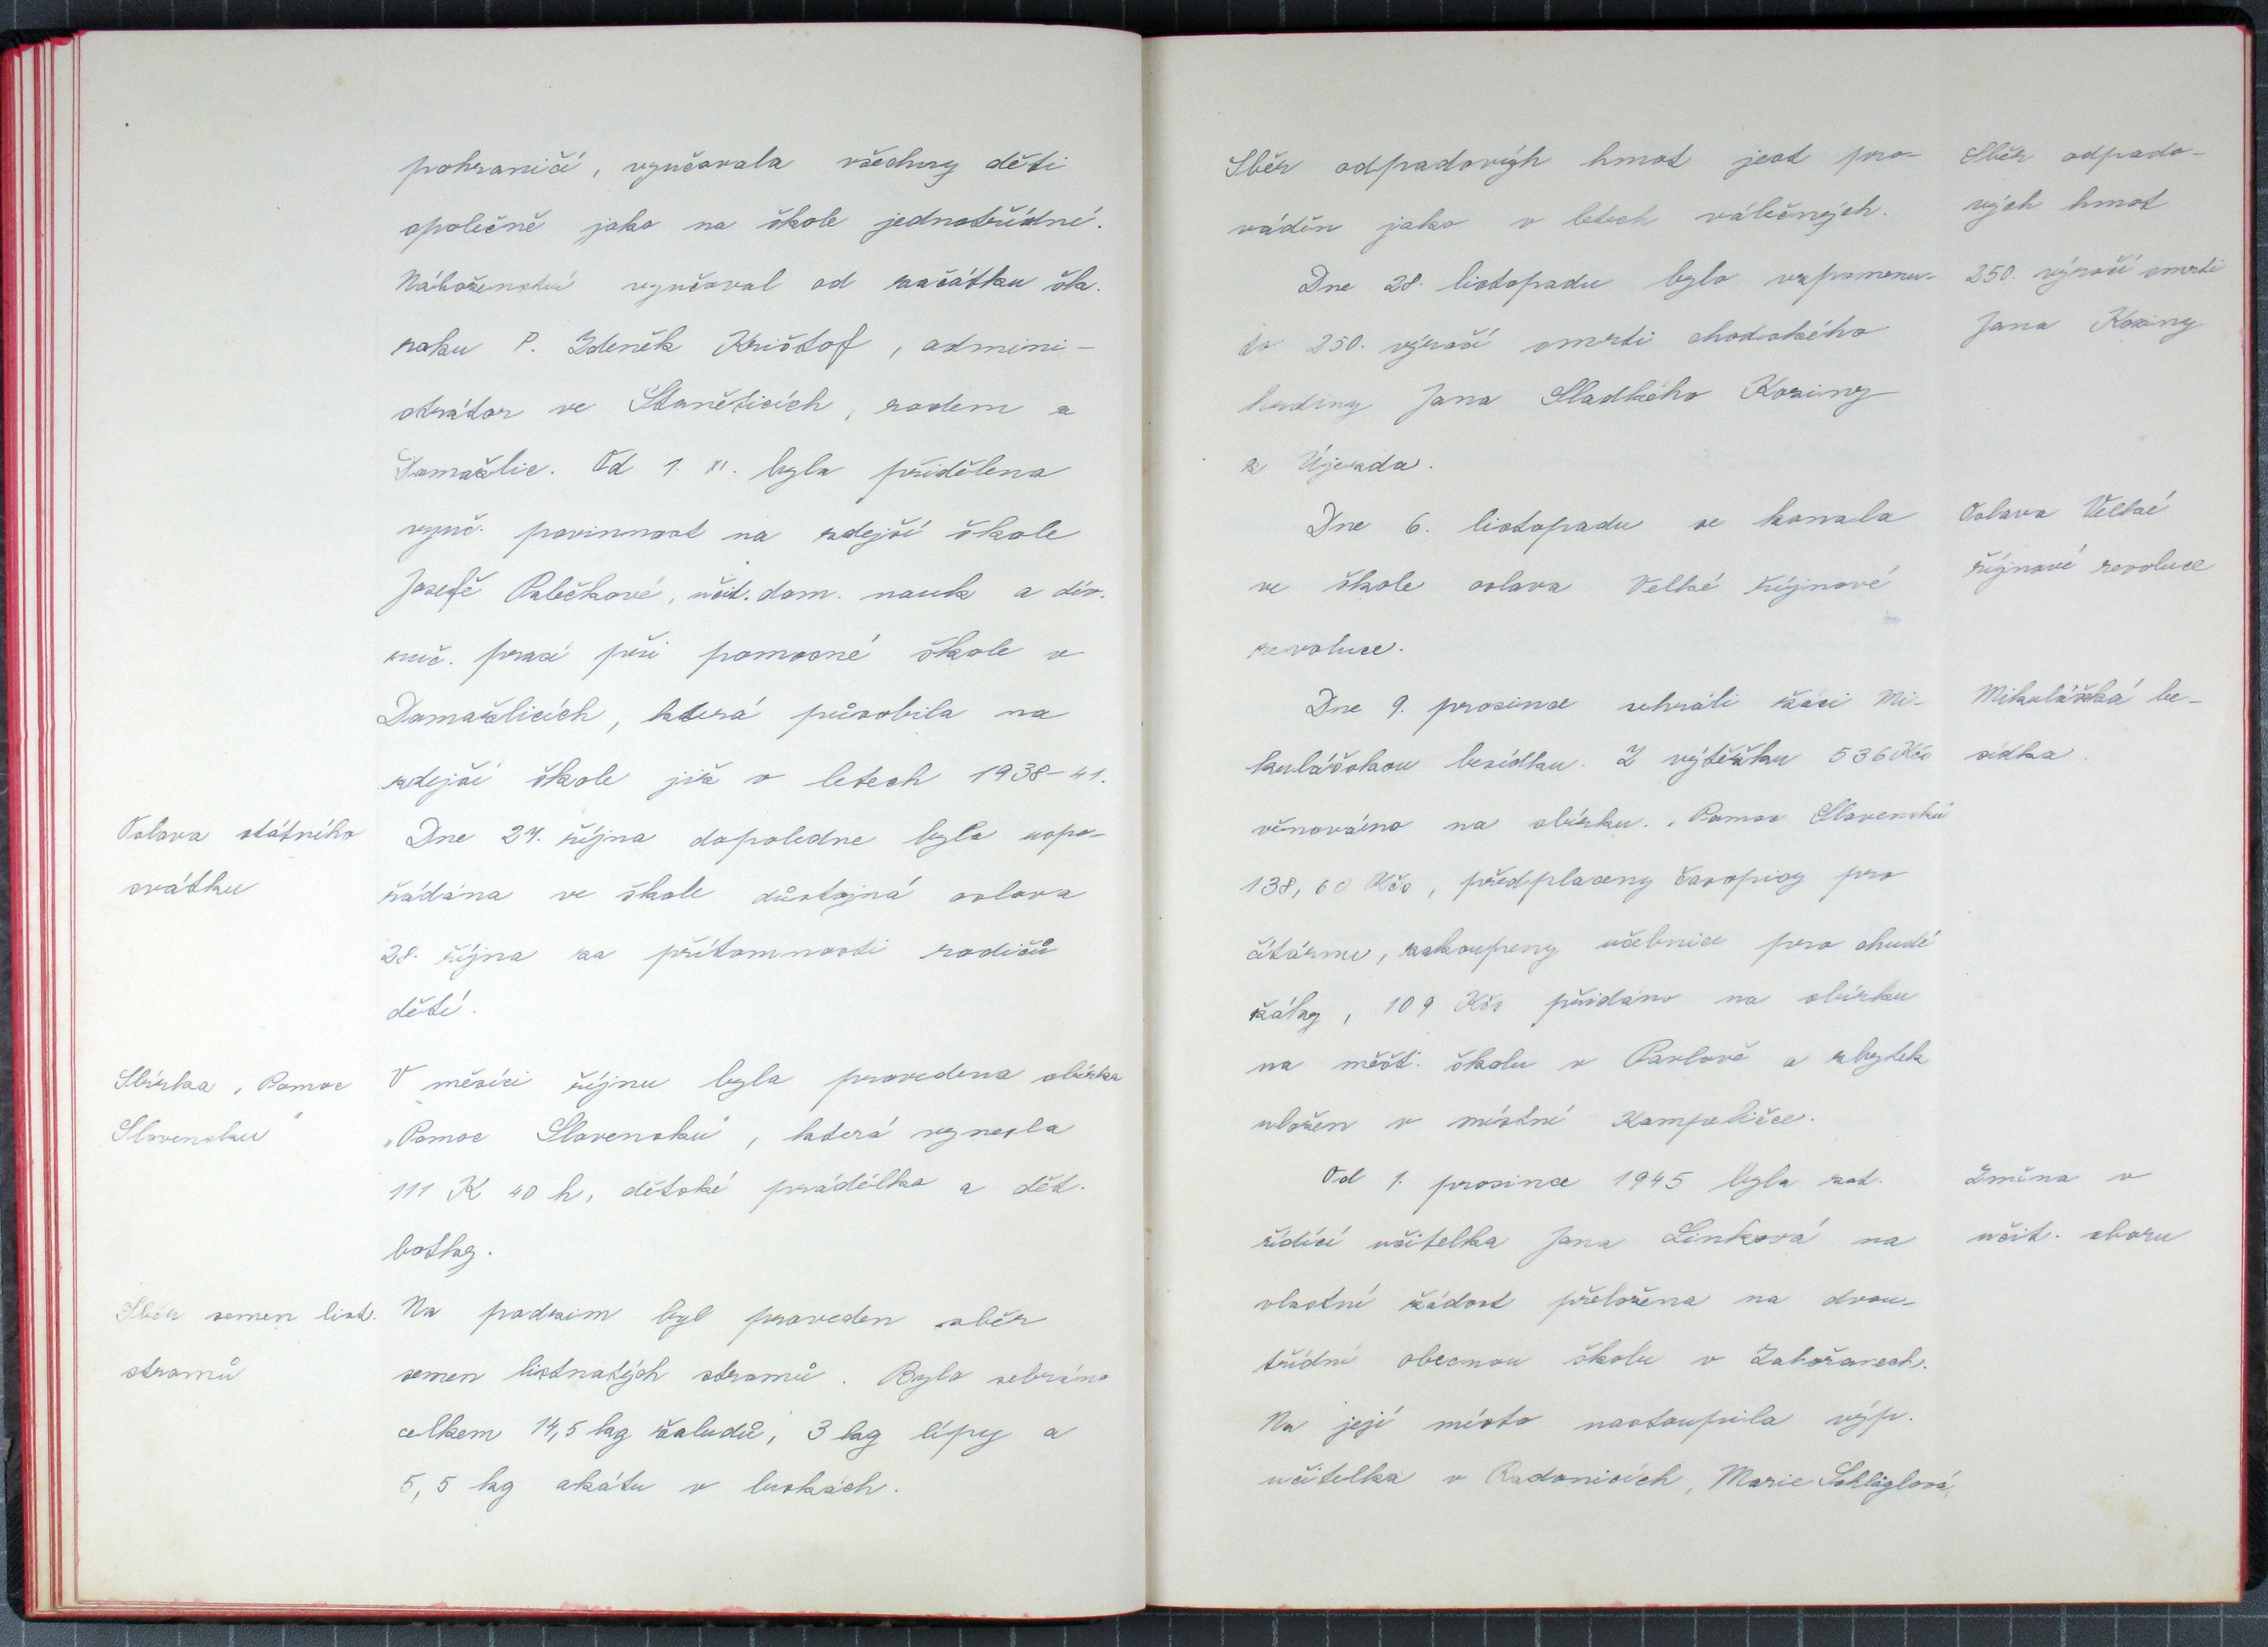 pohraničí, vyučovala všechny děti
společně jako na škole jednotřídní.
Náboženství vyučoval od začátku šk.
roku P. Zdeněk Krištof, admini-
strátor ve Staněticích, rodem z
Domažlic. Od 1. XI. byla přidělena
vyuč. povinnost na zdejší škole
Josefě Palečkové, učit. dom. nauk a dív.
ruč. prací při pomocné škole v
Domažlicích, která působila na
zdejší škole již v letech 1938-41.
Oslava státního
svátku
Dne 27. října dopoledne byla uspo-
řádána ve škole důstojná oslava
28. října za přítomnosti rodičů
dětí.
Sbírka „Pomoc
Slovensku"
V měsíci říjnu byla provedena sbírka
„Pomoc Slovensku", která vynesla
111 K 40 h, dětské prádélko a dět.
botky.
Sběr semen list.
stromů
Na podzim byl proveden sběr
semen listnatých stromů. Bylo sebráno
celkem 14,5 kg žaludů, 3 kg lípy a
5,5 kg akátu v luskách.
Sběr odpadových hmot jest pro-
váděn jako v letech válečných.
Sběr odpado-
vých hmot
Dne 28. listopadu bylo vzpomenu-
to 250. výročí smrti chodského
hrdiny Jana Sladkého Koziny
z Újezda.
250. výročí smrti
Jana Koziny
Dne 6. listopadu se konala
ve škole oslava Velké říjnové
revoluce.
Oslava Velké
říjnové revoluce
Dne 9. prosince sehráli žáci Mi-
kulášskou besídku. Z výtěžku 536 Kčs
věnováno na sbírku „Pomoc Slovensku
138,60 Kčs, předplaceny časopisy pro
čítárnu, zakoupeny učebnice pro chudé
žáky, 109 Kčs přidáno na sbírku
na měšť. školu v Pavlově a zbytek
uložen v místní Kampeličce.
Mikulášská be-
sídka.
Od 1. prosince 1945 byla zat.
řídící učitelka Jana Linková na
vlastní žádost přeložena na dvou-
třídní obecnou školu v Zahořanech.
Na její místo nastoupila výp.
učitelka v Radonicích, Marie Schläglová,
Změna v
učit. sboru